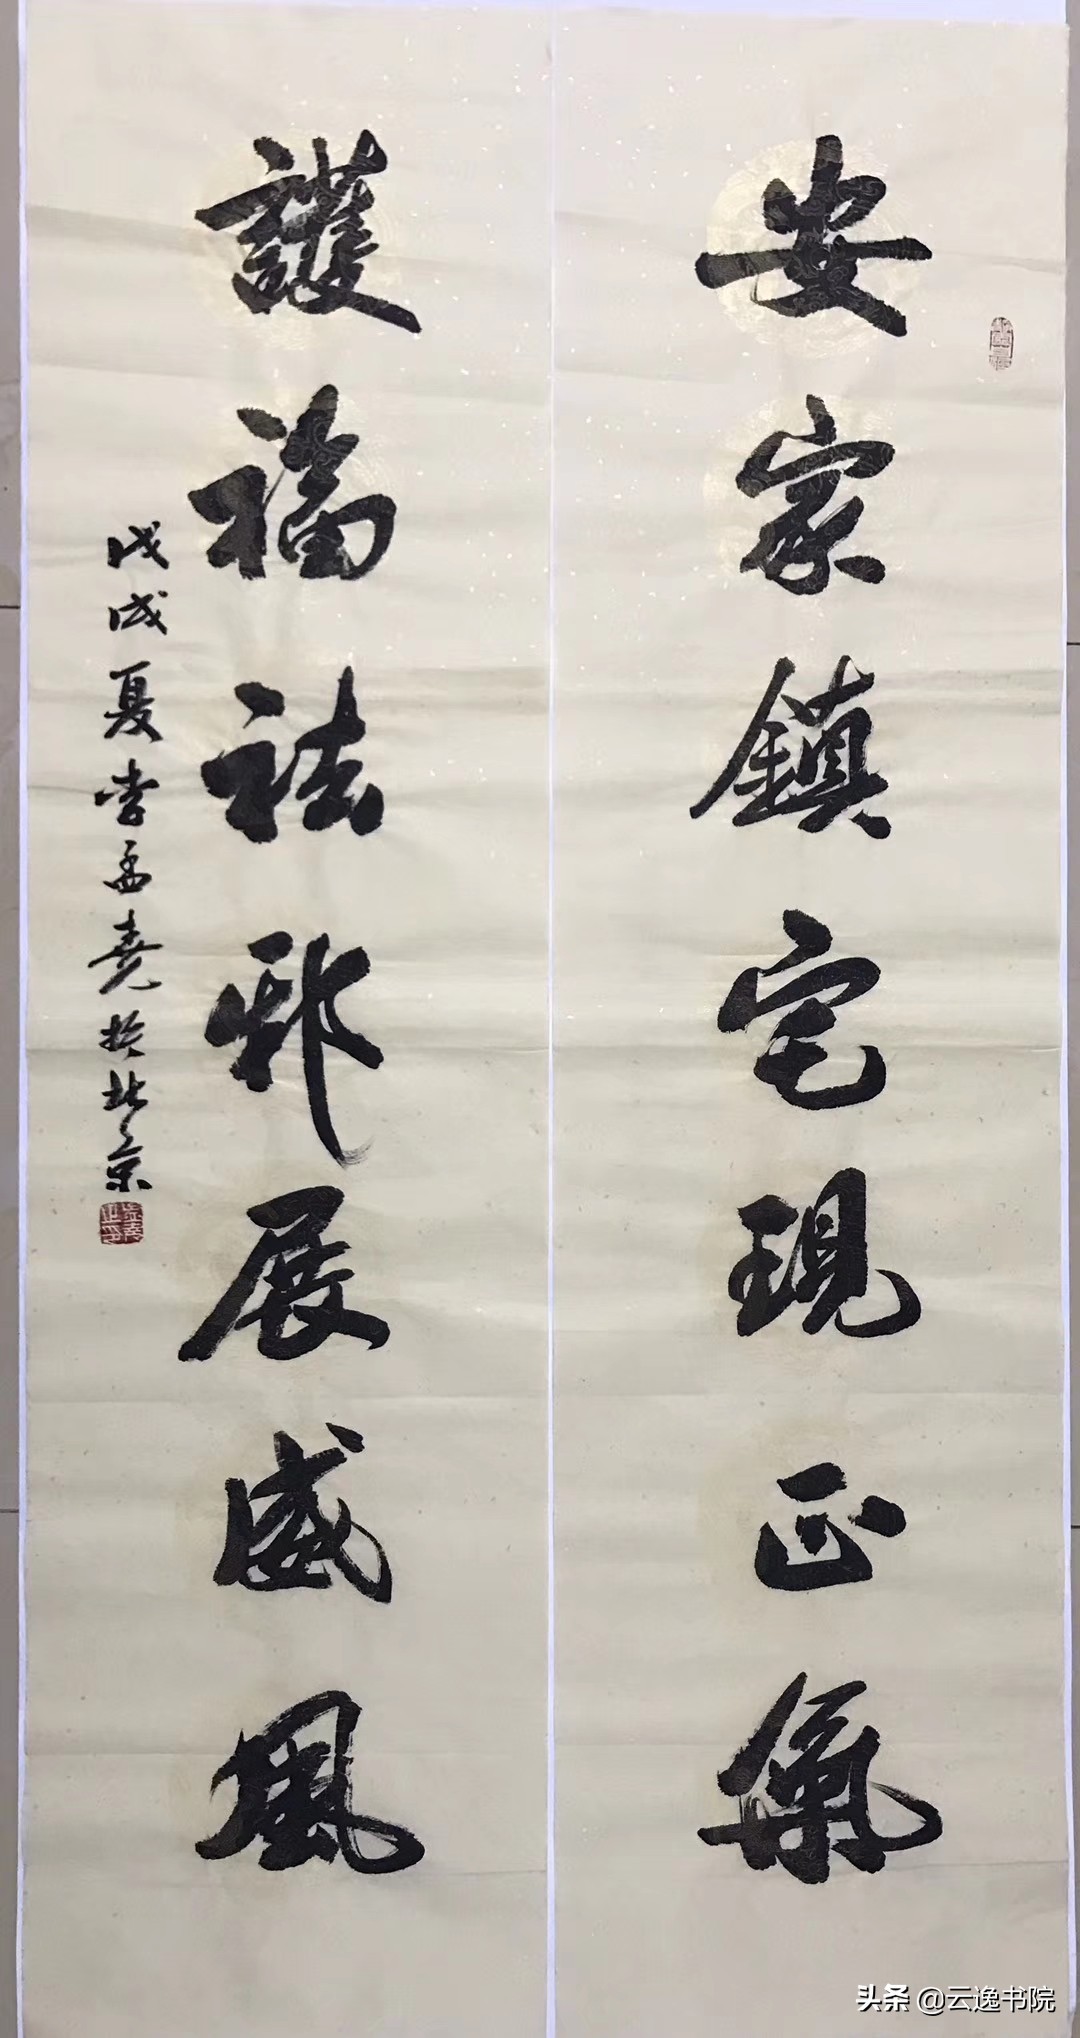 安家鎮宅現正氣
護福祛邪展威風
戊戌夏李孟堯於北京
头条 @云逸书院